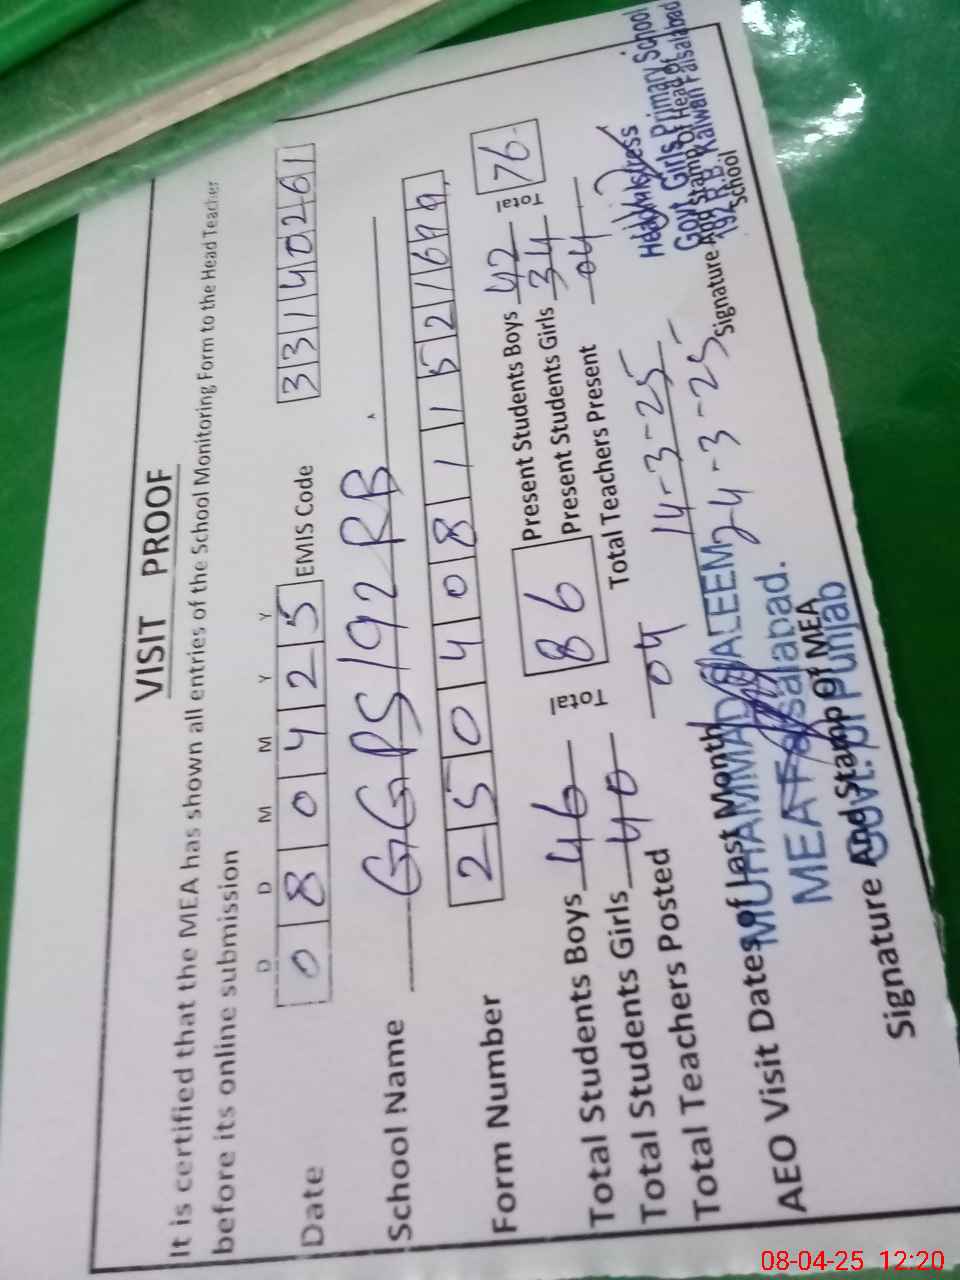 VISIT PROOF
It is certified that the MEA has shown all entries of the School Monitoring Form to the Head Teacher
before its online submission
D D M M Y Y
Date 080425 EMIS Code 33140261
School Name GGPS 192 RB
Form Number 2504081152
Total Students Boys 46 Total 86 Present Students Boys 42 Total 76
Total Students Girls 40 Present Students Girls 34
Total Teachers Posted 04 Total Teachers Present 04
AEO Visit Dates of last Month 14-3-25
24-3-25
MUHAMMAD ALEEM
MEA Faisalabad.
Govt. of Punjab
Signature And Stamp Of MEA
Headmistress
Govt Girls Primary School
192 R.B. Kalwan Faisalabad
Signature And Stamp Of Head Of
School
08-04-25 12:20